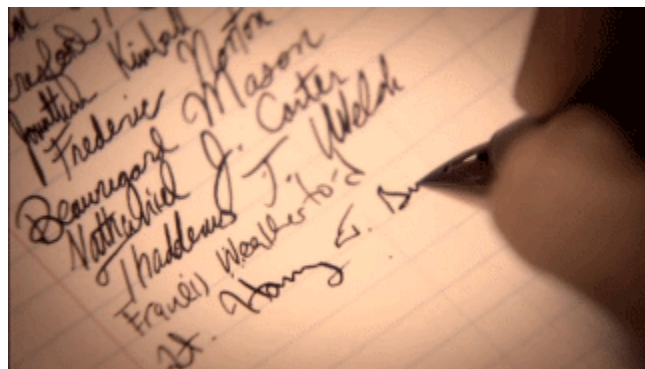 Jonathan Kimball
Frederic Norton
Beauregard Mason
Nathaniel J. Carter
Thaddeus T. Welsh
Francis Weatherford
Lt. Harry E. Bu